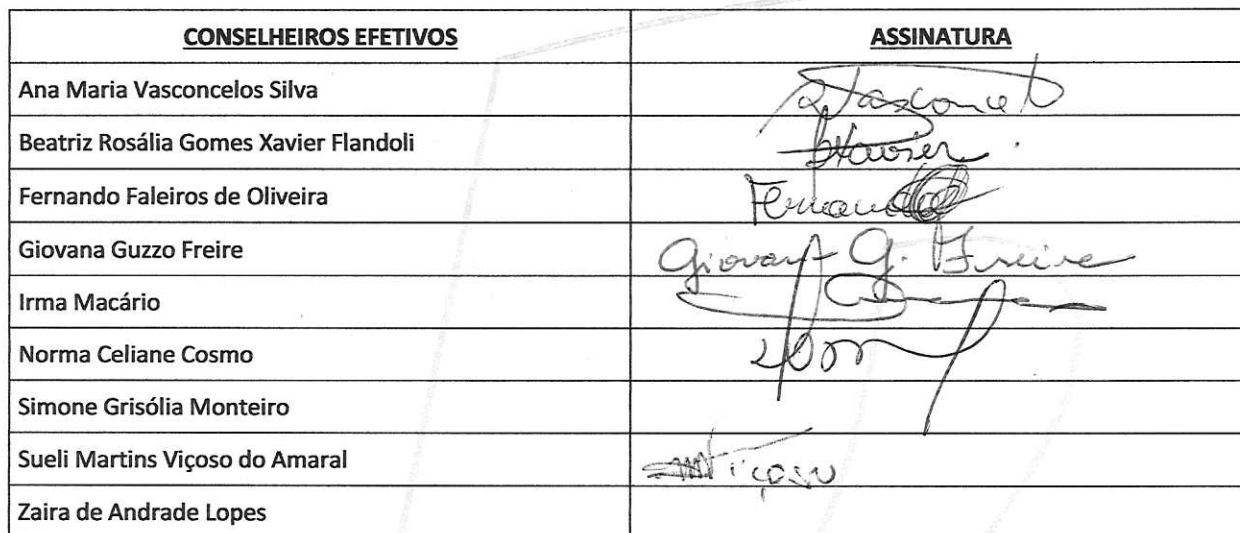 CONSELHEIROS EFETIVOS ASSINATURA
Ana Maria Vasconcelos Silva
Beatriz Rosália Gomes Xavier Flandoli BXavier
Fernando Faleiros de Oliveira Fernando
Giovana Guzzo Freire Giovana G. Freire
Irma Macário
Norma Celiane Cosmo
Simone Grisólia Monteiro
Sueli Martins Viçoso do Amaral Viçoso
Zaira de Andrade Lopes